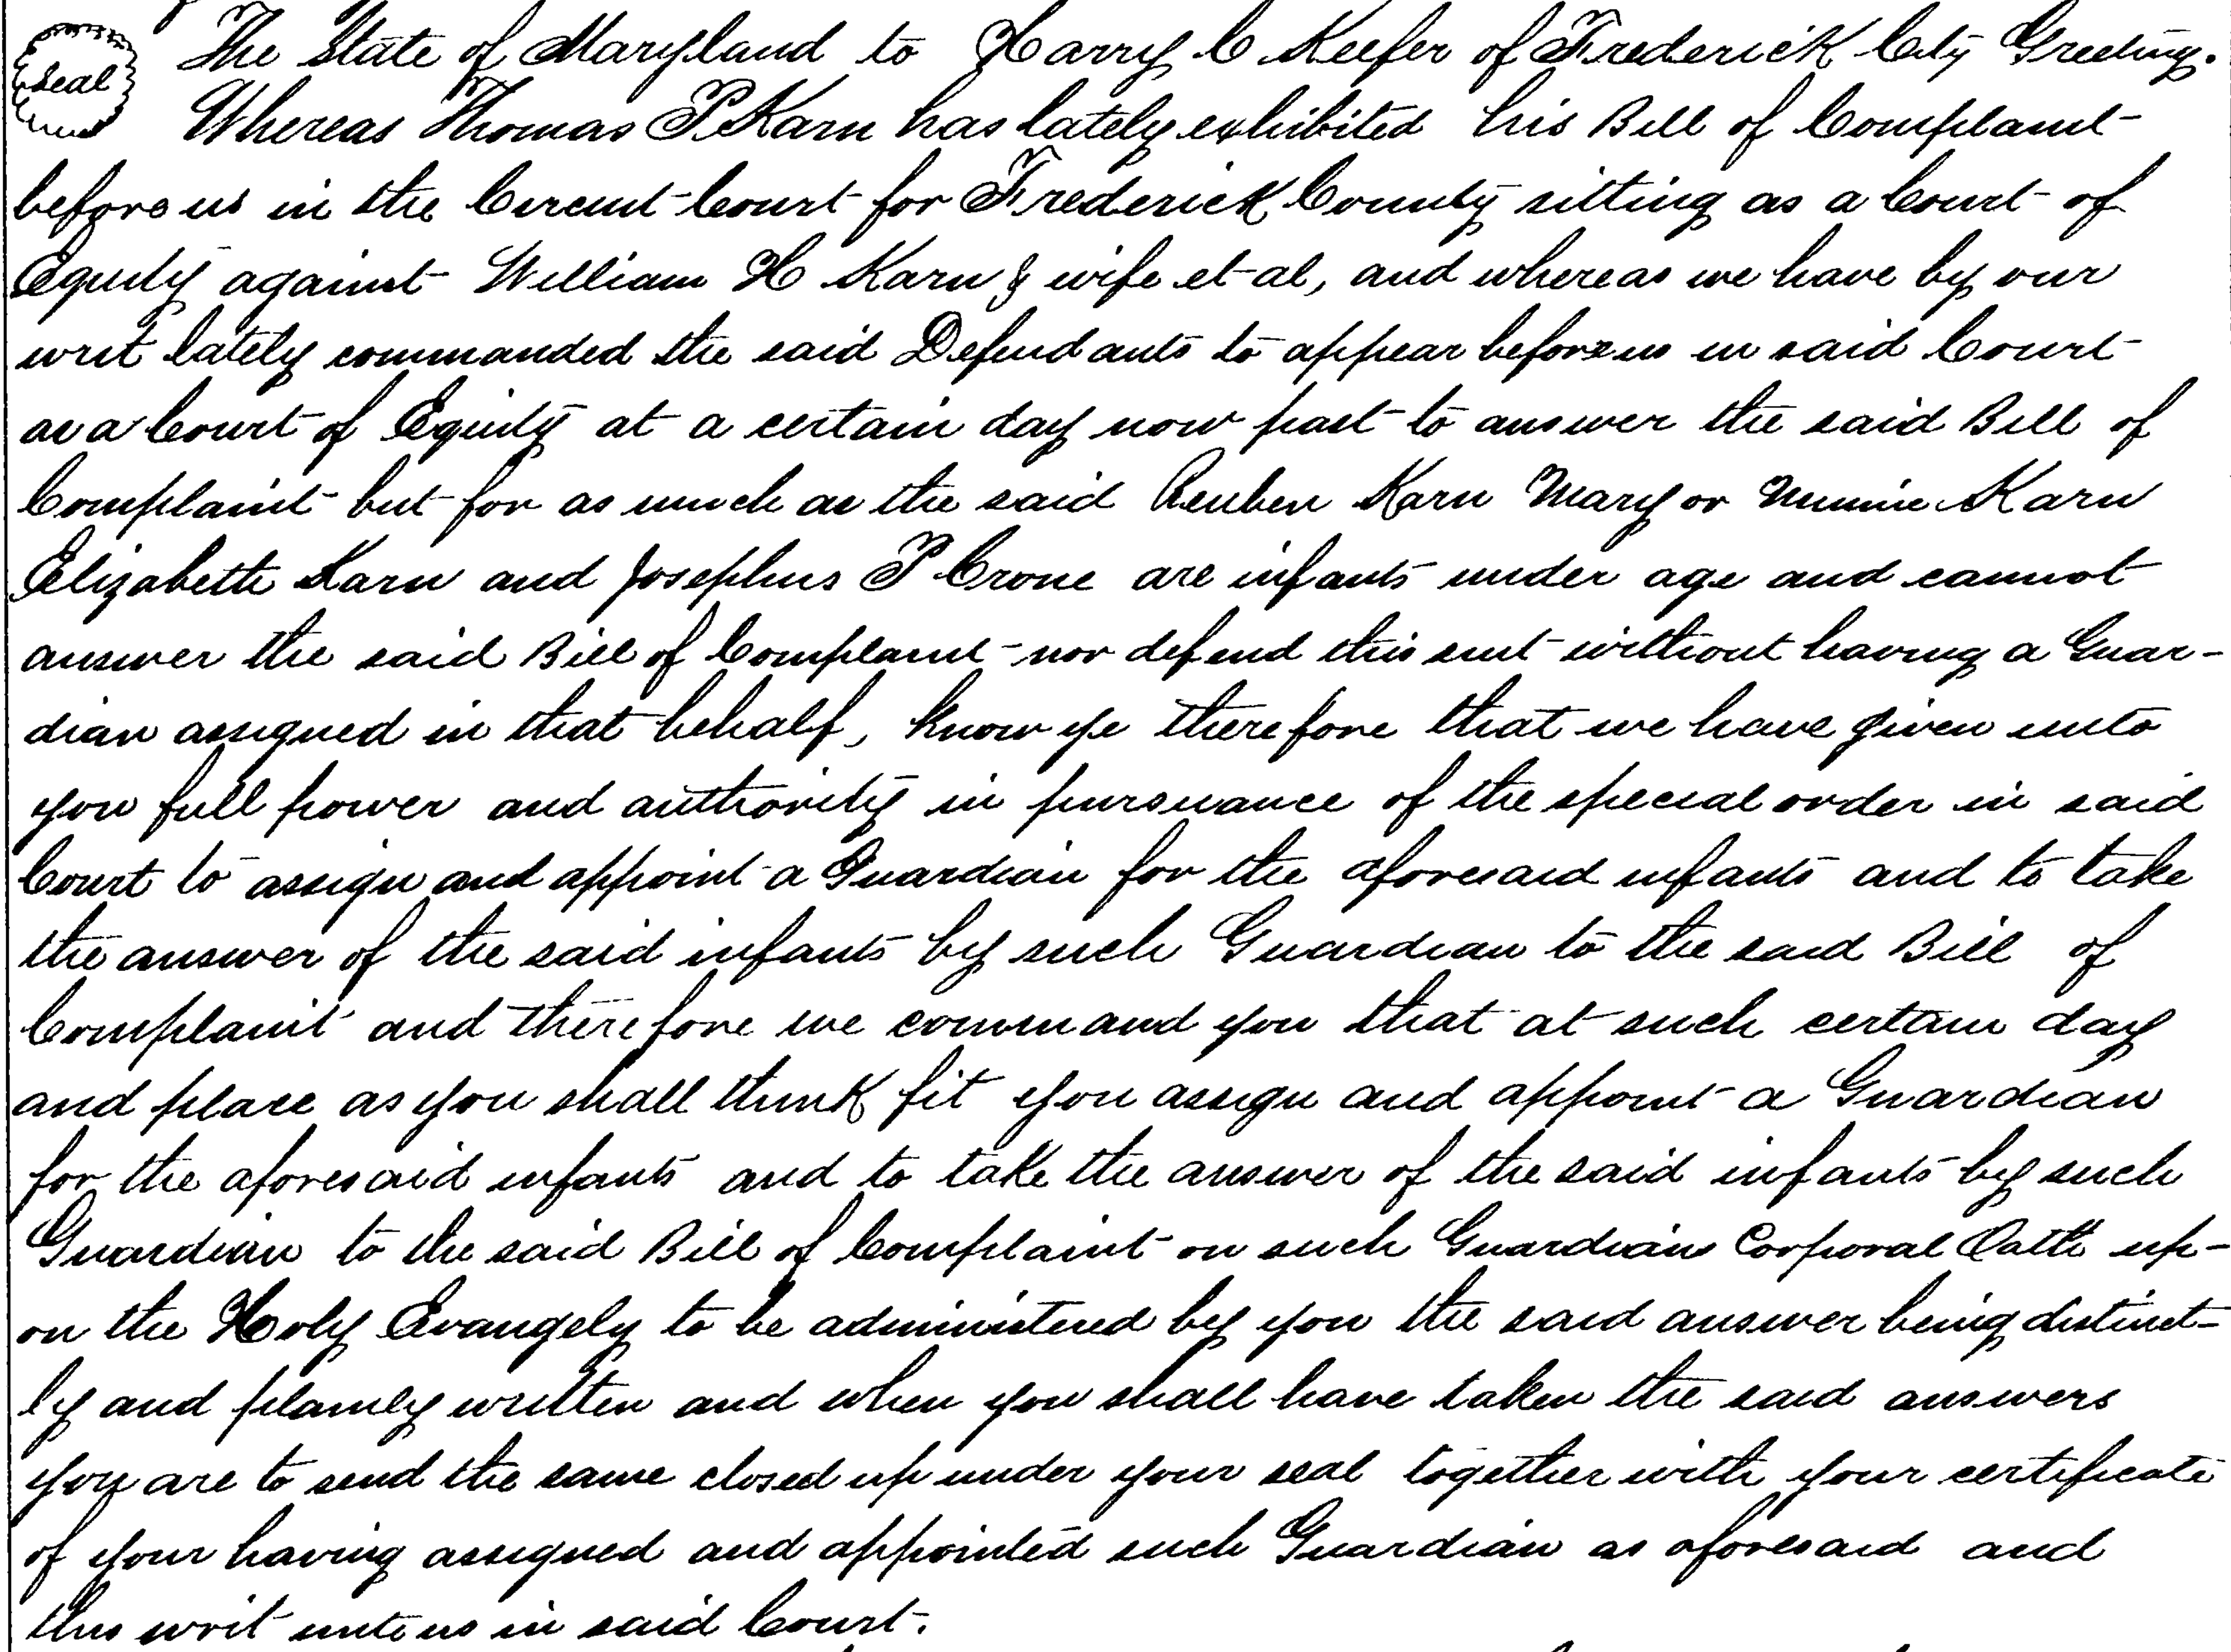 Seal
The State of Maryland to Harry C Keefer of Frederick City Greeting.
Whereas Thomas P Karn has lately exhibited his Bill of Complaint
before us in the Circuit Court for Frederick County sitting as a Court of
Equity against William H Karn & wife et al, and whereas we have by our
writ lately commanded the said Defendants to appear before us in said Court
as a Court of Equity at a certain day now past to answer the said Bill of
Complaint but for as much as the said Reuben Karn Mary or Minnie Karn
Elizabeth Karn and Josephus P Crone are infants under age and cannot
answer the said Bill of Complaint nor defend this suit without having a Guar-
dian assigned in that behalf, Know ye therefore that we have given unto
you full power and authority in pursuance of the special order in said
Court to assign and appoint a Guardian for the aforesaid infants and to take
the answer of the said infants by such Guardian to the said Bill of
Complaint and therefore we command you that at such certain day
and place as you shall think fit you assign and appoint a Guardian
for the aforesaid infants and to take the answer of the said infants by such
Guardian to the said Bill of Complaint on such Guardians Corporal Oath up-
on the Holy Evangely to be administered by you the said answer being distinct-
ly and plainly written and when you shall have taken the said answers
you are to send the same closed up under your seal together with your certificate
of your having assigned and appointed such Guardian as aforesaid and
this writ unto us in said Court.